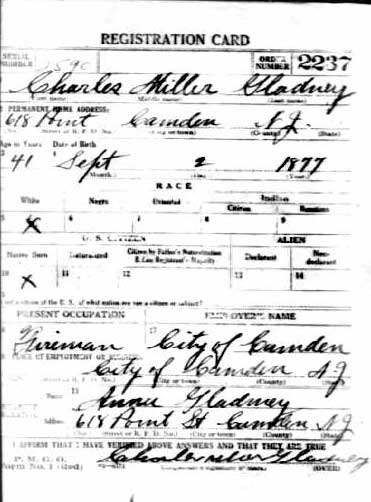 REGISTRATION CARD
SERIAL NUMBER 590 ORDER NUMBER 2237
Charles Miller Gladney
(First name) (Middle name) (Last name)
PERMANENT HOME ADDRESS:
618 Point Camden N.J.
(No.) (Street or R. F. D. No.) (City or town) (County) (State)
Age in Years Date of Birth
41 Sept 2 1877
(Month.) (Day.) (Year.)
RACE
White Negro Oriental Indian
Citizen Noncitizen
5 X 6 7 8 9
U. S. CITIZEN ALIEN
Native Born Naturalized Citizen by Father's Naturalization Before Registrant's Majority Declarant Non-declarant
10 X 11 12 13 14
15 If not a citizen of the U. S. of what nation are you a citizen or subject?
PRESENT OCCUPATION EMPLOYER'S NAME
Fireman City of Camden
PLACE OF EMPLOYMENT OR BUSINESS
City of Camden N.J.
(City or town) (County) (State)
Name Annie Gladney
Address 618 Point St Camden N.J.
(No.) (Street or R. F. D. No.) (City or town) (County) (State)
I AFFIRM THAT I HAVE VERIFIED ABOVE ANSWERS AND THAT THEY ARE TRUE
P. M. G. O.
Form No. 1 (Red)
Charles Miller Gladney
(OVER)